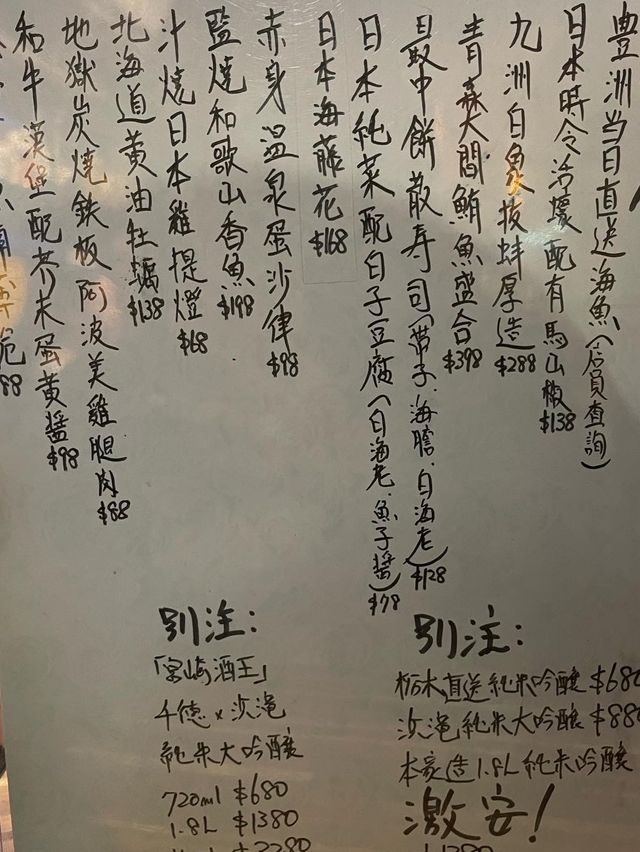 豊洲当日直送海魚(店員查詢)
日本時令活蠔配有馬山椒 $138
九洲白象拔蚌厚造 $288
青森大間鮪魚盛合 $398
最中餅散寿司(帶子、海膽、白海老) $128
日本純菜配白子豆腐(白海老、魚子醬) $78
日本海藤花 $168
赤身温泉蛋沙律 $98
鹽燒和歌山香魚 $198
汁燒日本雞提燈 $68
北海道黃油牡蠣 $138
地獄炭燒鉄板阿波美雞腿肉 $88
和牛漢堡配芥末蛋黃醬 $98
別注:
栃木直送純米吟釀 $680
純米大吟釀 $880
本豪造1.8L純米吟釀
激安!
別注:
「宮崎酒王」
千徳 x
純米大吟釀
720ml $680
1.8L $1380
$2280